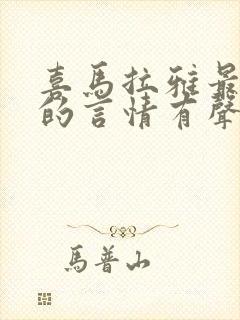 喜馬拉雅最
的言情有聲
馬普山